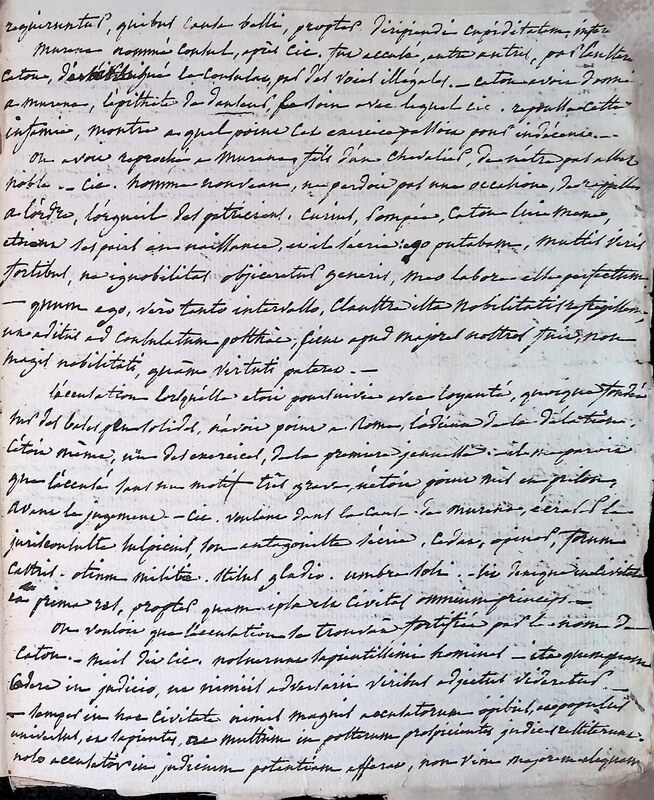 requiruntur, quibus causa belli, propter diripiendi cupiditatem, infere
Murena nommé consul, après Cic. fut accusé, entre autres, par l'austere
Caton, d'avoir brigué le consulat, par des voies illégales. – Caton avoit donné
a murena, l'épithète de danseur, le soin avec lequel cic. repousse cette
infamie, montre a quel point cet exercice passoit pour indécent. –
On avoit reproché a Murena, fils d'un chevalier, de n'être pas assez
noble. – Cic. homme nouveau, ne perdoit pas une occasion, de rappeller
a l'ordre, l'orgueil des patriciens. Curius, Pompée, Caton lui meme,
étoient ses pairs en naissance, et il s'écrie: ego putabam, multis viris
fortibus, ne ignobilitas objiceretur generis, meo labore esse perfectum.
– quum ego, vero tanto intervallo, claustra ista nobilitatis refregissem,
ut aditus ad consulatum posthac, sicut apud majores nostros fuit, non
magis nobilitati, quam virtuti pateret. –
L'accusation lorsqu'elle etoit poursuivie avec loyauté, quoique fondée
sur des bases peu solides, n'avoit point a Rome, l'odieux de la délation.
C'étoit même, un des exercices, de la premiere jeunesse: il me paroit
que l'accusé sans un motif très grave, n'étoit point mis en prison,
avant le jugement – Cic. voulant dans la cause de murena, écraser le
jurisconsulte sulpicius, son antagoniste s'écrie, cedat, opinor, forum
castris. otium militiæ. stilus gladio. umbra soli. – sit denique in civitate
ea prima res, propter quam ipsa est civitas omnium princeps. –
On vouloit que l'accusation se trouvât fortifiée par le nom de
Caton. – mais dit cic. noluerunt sapientissimi homines – ita quemquam
cadere in judicio, ut nimiis adversarii viribus abjectus videretur –
– semper in hac civitate nimis magnis accusatorum opibus, et populus
universus, et sapientes, ac multum in posterum prospicientes judices restiterunt.
nolo accusator in judicium potentiam afferat, non vim majorem aliquam